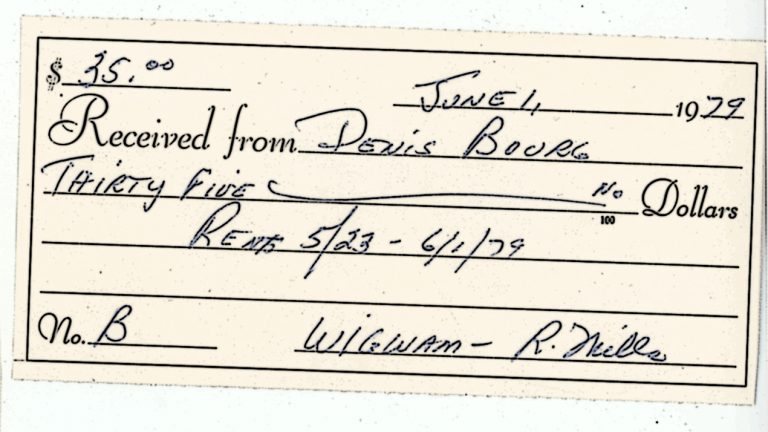 $ 35.00
JUNE 1, 1979
Received from DENIS BOURG
THIRTY FIVE No/100 Dollars
RENT 5/23 - 6/1/79
No. B WIGWAM - R. Mills